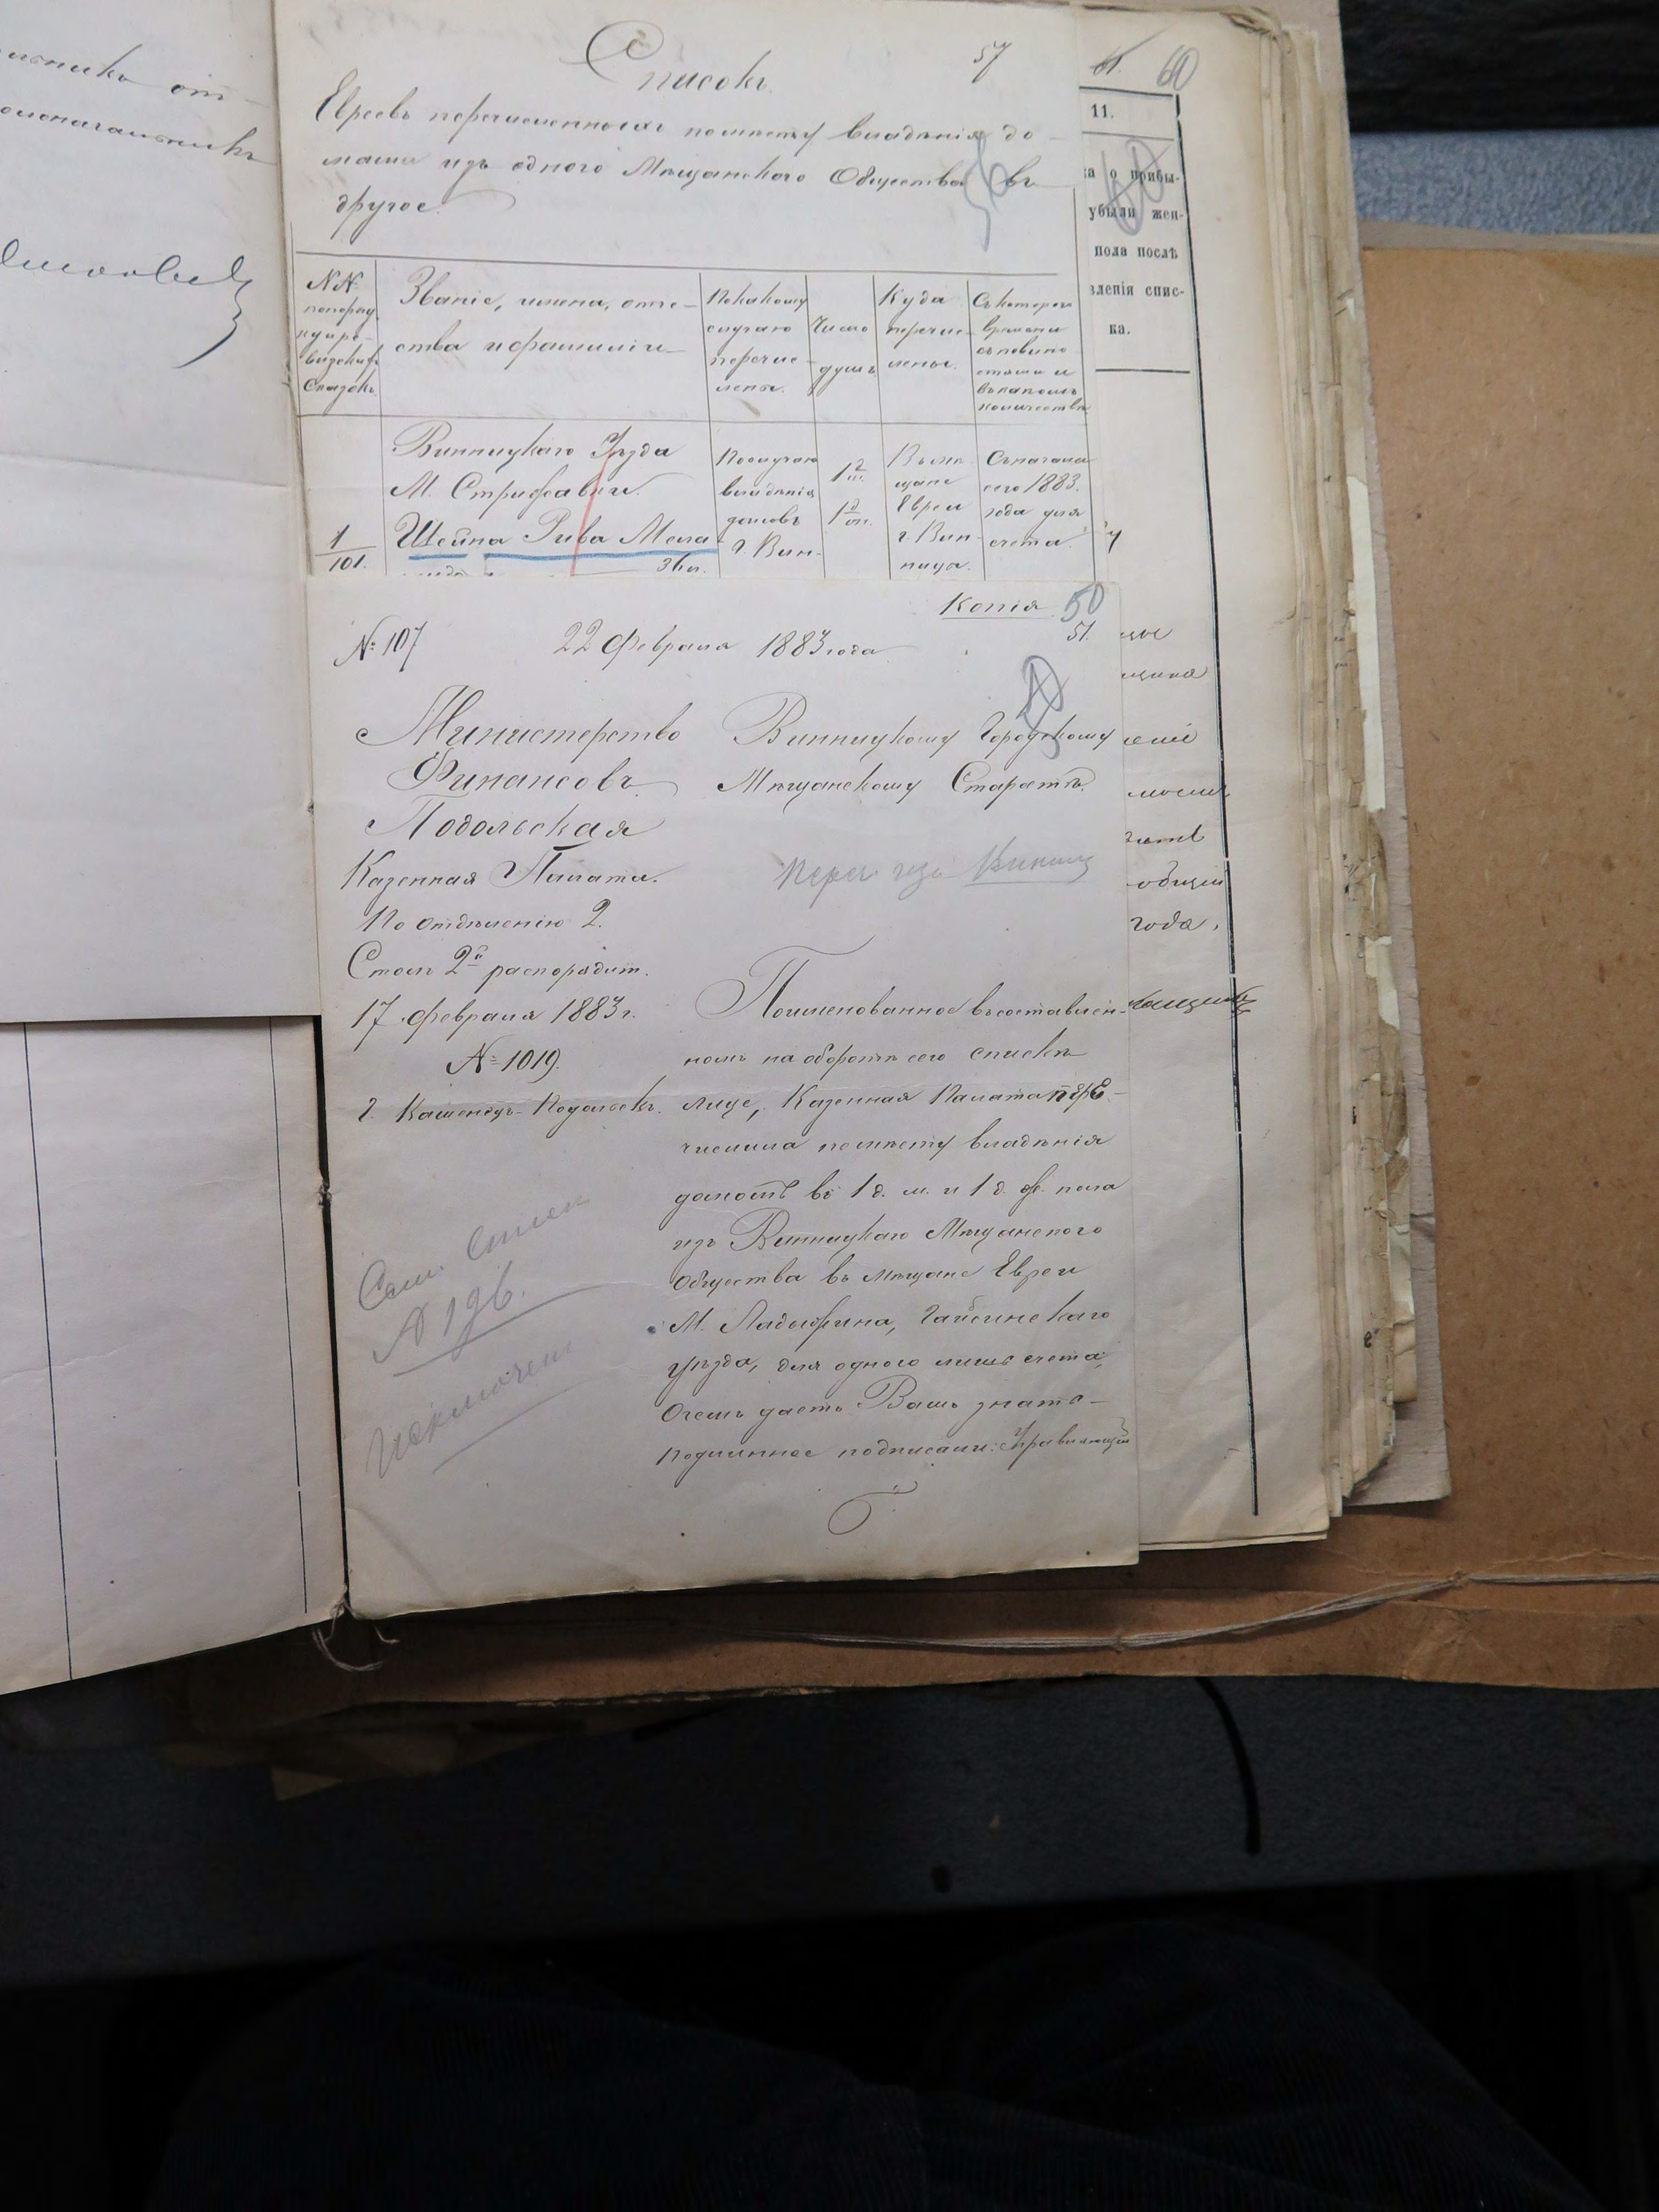 Списокъ
57
Евреевъ перечисленныхъ по мѣсту владѣнія до-
мами изъ одного Мѣщанскаго Общества въ
другое.
№№ попоряд. и по ре- визскимъ Сказкѣ.
Званіе, имена, отче- ства и фамиліи
По какому случаю перечис- лены.
Число душъ
Куда перечис- лены.
Съ котораго времени съ повинно- стями и въ какомъ количествѣ
Винницкаго Уѣзда
М. Стрижавки.
1/101. Шейна Рива Мела
По случаю владѣнія домовъ г. Вин-
1 д. м. 1 д. ж.
Въ мѣ- щане Евреи г. Вин- ница.
Съ начала сего 1883. года для счета.
60
11.
ка о прибы-
убыли жен-
пола послѣ
вленія спис-
ка.
Копія 50
51.
№ 107 22 Февраля 1883 года
Министерство
Финансовъ
Подольская
Казенная Палата.
По отдѣленію 2.
Столъ 2й распорядит.
17 Февраля 1883 г.
№ 1019.
г. Каменецъ-Подольскъ.
Винницкому Городскому
Мѣщанскому Старостѣ.
Поименованное въ составлен-
номъ на оборотѣ сего спискѣ
лице, Казенная Палата пере-
числила по мѣсту владѣнія
домомъ въ 1 д. м. и 1 д. ж. пола
изъ Винницкаго Мѣщанского
Общества въ мѣщане Евреи
М. Ладыжина, Гайсинскаго
уѣзда, для одного лишь счета,
О чемъ даетъ Вамъ знать-
Подлинное подписали: Управляющій
Сем. Спис
№ 196.
Исключен
общій
года,